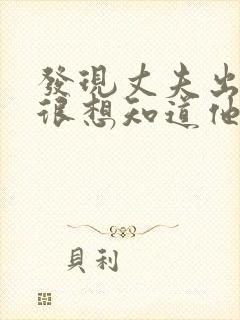 發現丈夫出
很想知道他
貝利